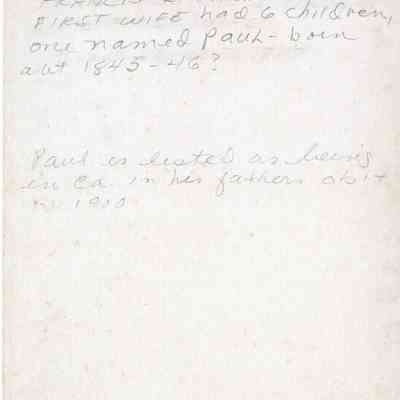 FRANCIS
FIRST WIFE had 6 children,
one named Paul - born
abt 1845-46?
Paul is listed as being
in Ca. in his fathers obit
in 1910